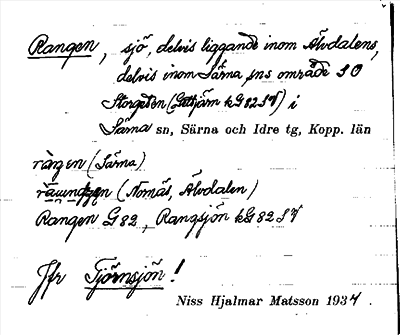 Rangen, sjö, delvis liggande inom Älvdalens,
delvis inom Särna sns område SO
Storgeten (Gettjärn kG82SV) i
Särna sn, Särna och Idre tg, Kopp. län
ràngen (Särna)
(Nornäs, Älvdalen)
Rangen G82, Rangsjön kG82SV
Jfr Tjörnsjön!
Niss Hjalmar Matsson 1934.